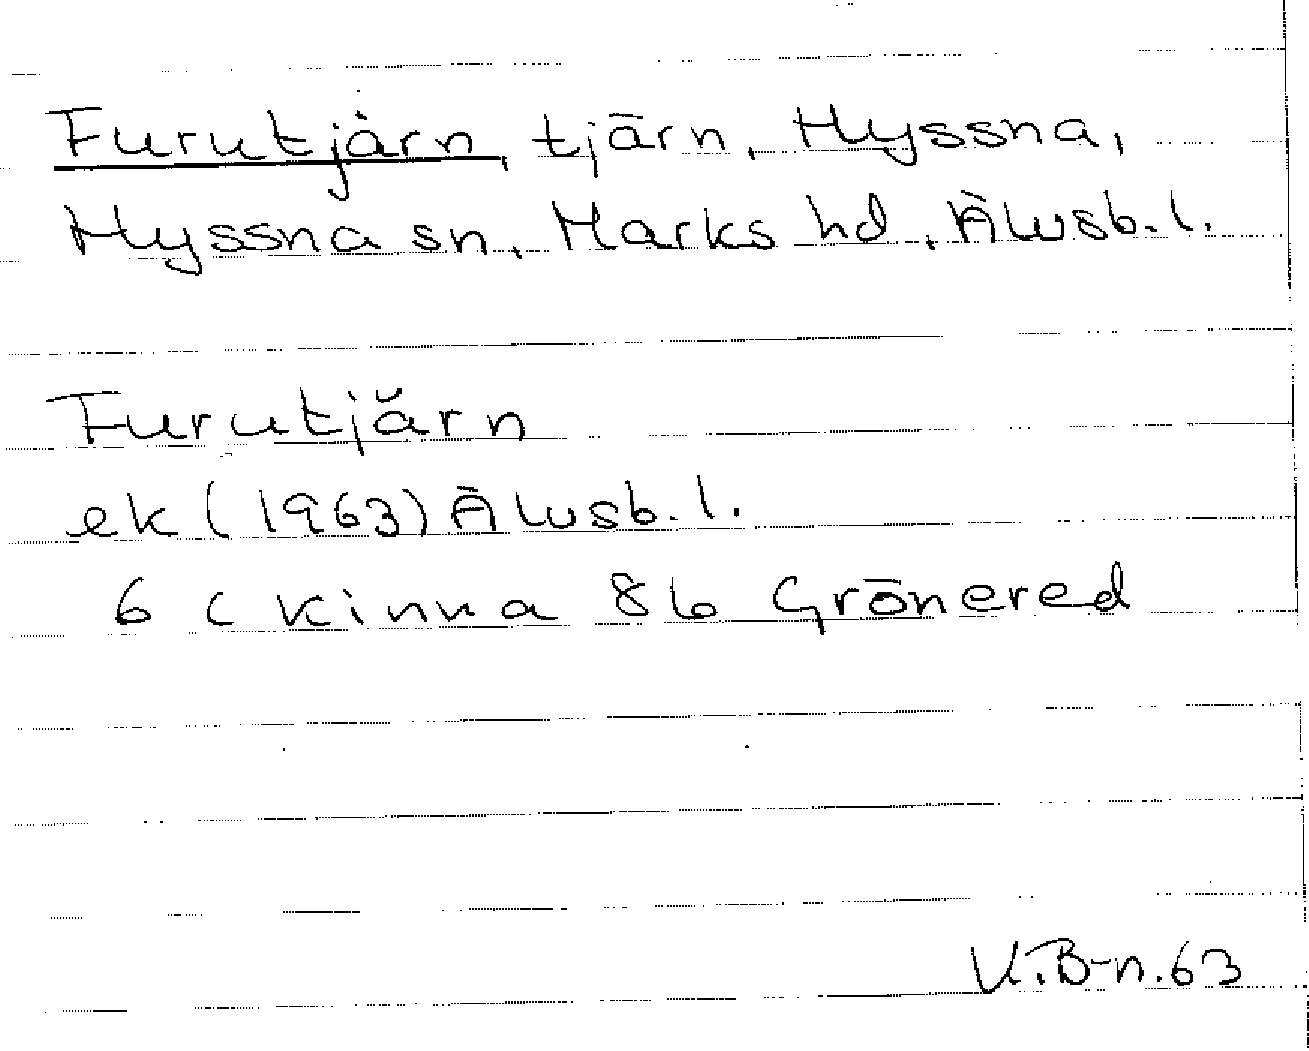 Furutjärn, tjärn, Hyssna,
Hyssna sn, Marks hd, Älvsb. l.
Furutjärn
ek (1963) Älvsb. l.
6 C Kinna 8b Grönered
K.B-n. 63